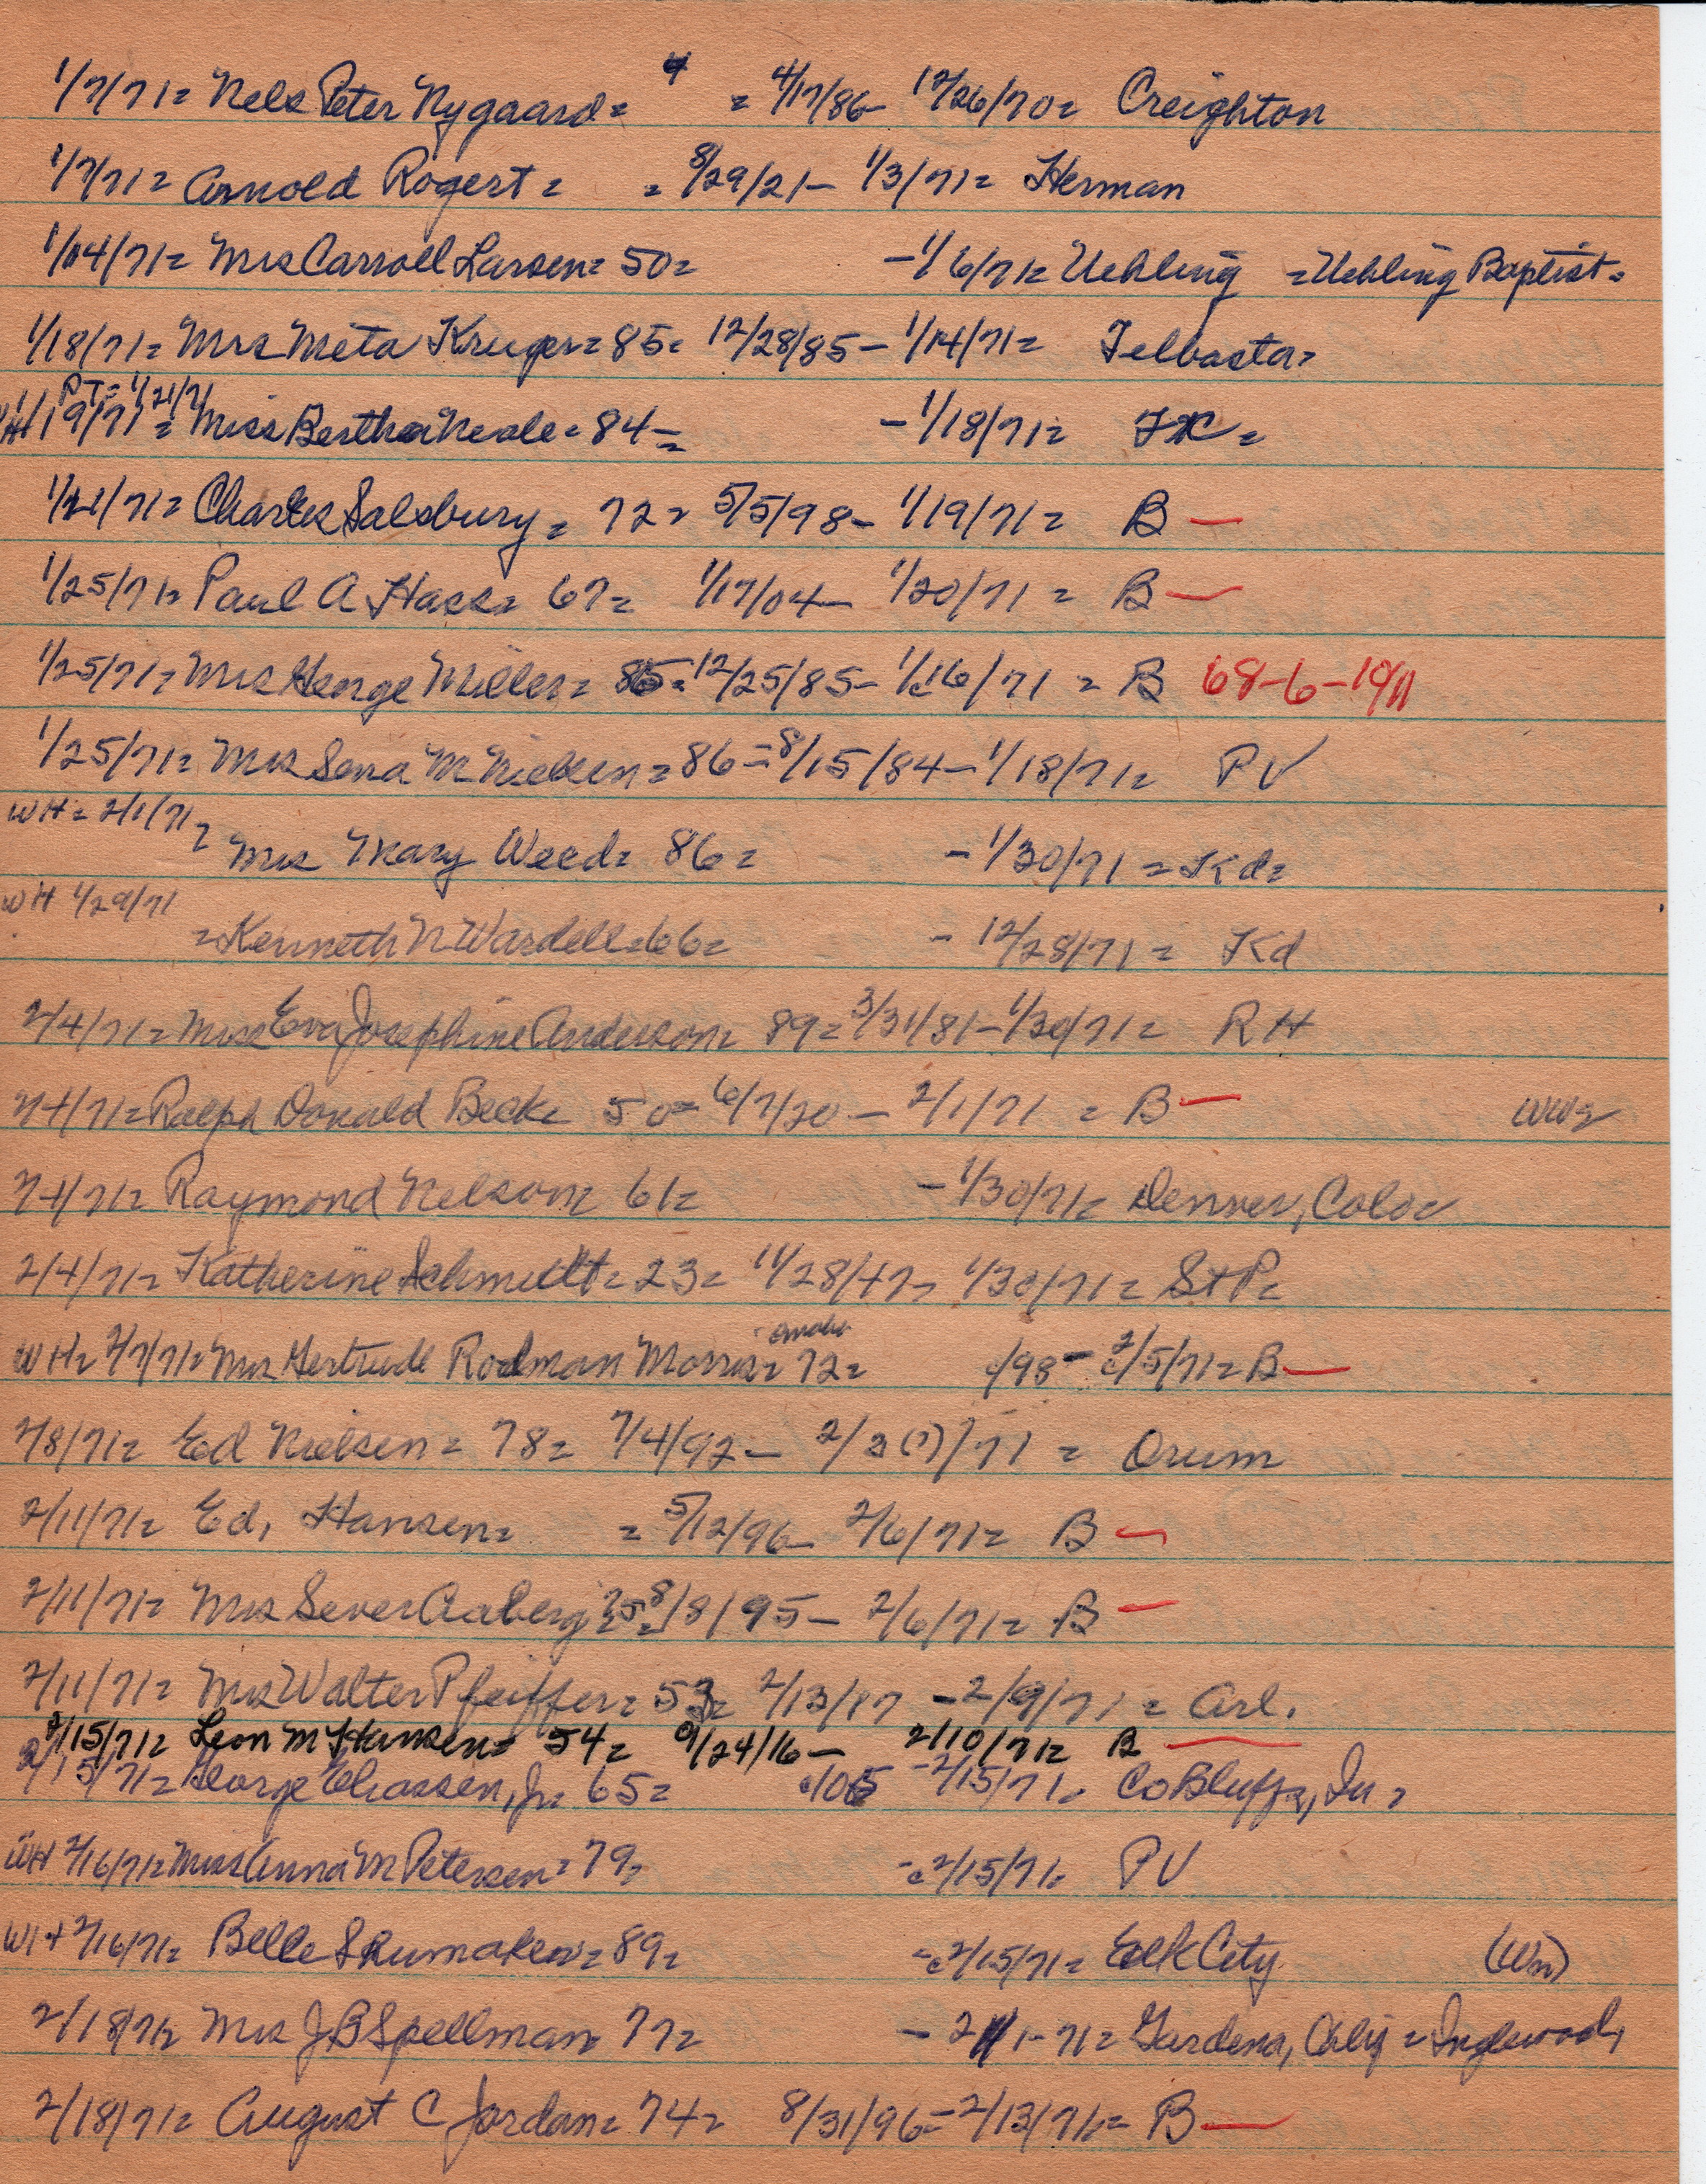 1/7/71= Nels Peter Nygaard= = 4/17/86- 12/26/70= Creighton
1/7/71= Arnold Rogert= = 8/29/21- 1/3/71= Herman
1/14/71= Mrs Carroll Larsen= 50= -1/6/71= Uehling =Uehling Baptist=
1/18/71= Mrs Meta Kruger= 85= 12/28/85- 1/14/71= Telbasta=
PT= 1/21/71
WH 1/19/71= Miss Bertha Neale= 84-= -1/18/71= =
1/21/71= Charles Salsbury= 72= 5/5/98- 1/19/71= B-
1/25/71= Paul A Hass= 67= 1/17/04- 1/20/71= B-
1/25/71= Mrs George Miller= 85= 12/25/85- 1/16/71 = B 68-6-10/11
1/25/71= Mrs Sena M Nielsen= 86= 8/15/84- 1/18/71= PV
WH= 2/1/71= Mrs Mary Weed= 86= -1/30/71 = Kd=
WH 1/29/71 =Kenneth N Wardell=66= - 12/28/71 = Kd
2/4/71= Miss Eva Josephine Anderson= 89= 3/31/81-1/30/71= RH
2/4/71= Ralph Donald Beck= 50= 6/7/20 - 2/1/71 = B- WW2
2/4/71= Raymond Nelson= 61= -1/30/71= Denver, Colo=
2/4/71= Katherine Schmidt= 23= 11/28/47- 1/30/71= StP=
WH= 2/7/71= Mrs Gertrude Rodman Morris= Omaha 72= c/98- c2/5/71= B-
2/8/71= Ed Nielsen= 78= 7/4/92- 2/3(?)/71 = Orum
2/11/71= Ed, Hansen= = 5/12/96- 2/6/71= B-
2/11/71= Mrs Sever Aaberg= 75= 8/8/95- 2/6/71= B-
2/11/71= Mrs Walter Pfeiffer= 53= 2/13/17 -2/9/71= Arl.
2/15/71= Leon M Hansen= 54= 9/24/16- 2/10/71= B-
2/15/71= George Eliassen, Jr= 65= c/05 -2/15/71= Co Bluffs, Ia=
WH 2/16/71= Miss Anna M Petersen= 79= -c2/15/71= PV
WH 2/16/71= Belle Shumaker= 89= -c2/15/71= Elk City (Wn)
2/18/71= Mrs J B Spellman= 77= - 2/1-71= Gardena, Calif = Inglewood,
2/18/71= August C Jordan= 74= 8/31/96=-2/13/71= B-